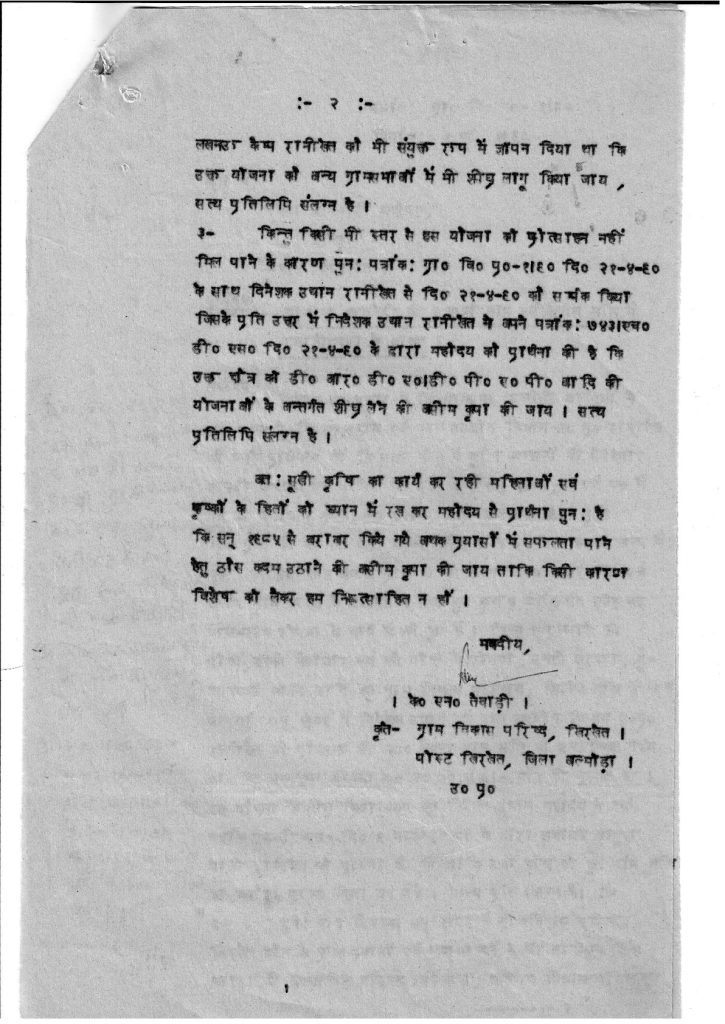 :- २ :-
लखनऊ कैम्प रानीखेत को भी संयुक्त रूप में ज्ञापन दिया था कि
उक्त योजना को अन्य ग्रामसभाओं में भी शीघ्र लागू किया जाय ,
सत्य प्रतिलिपि संलग्न है ।
३- किन्तु किसी भी स्तर से इस योजना को प्रोत्साहन नहीं
मिल पाने के कारण पुन: पत्रांक: ग्रा० वि० प०-१।६० दि० २१-४-६०
के साथ दिनेशक उद्यान रानीखेत से दि० २१-४-६० को सर्म्पक किया
जिसके प्रति उत्तर में निदेशक उद्यान रानीखेत ने अपने पत्रांक: ७४३।एच०
डी० एस० दि० २१-४-६० के द्वारा महोदय को प्रार्थना की है कि
उक्त क्षेत्र को डी० आर० डी० ए०।डी० पी० ए० पी० आदि की
योजनाओं के अन्तर्गत शीघ्र लेने की असीम कृपा की जाय । सत्य
प्रतिलिपि संलग्न है ।
अत: सूखी कृषि का कार्य कर रही महिलाओं एवं
कृषकों के हितों को ध्यान में रख कर महोदय से प्रार्थना पुन: है
कि सन् १९८५ से बराबर किये गये अथक प्रयासों में सफलता पाने
हेतु ठोस कदम उठाने की असीम कृपा की जाय ताकि किसी कारण
विशेष को लेकर हम निरूत्साहित न हों ।
भवदीय,
। के० एन० तेवाड़ी ।
कृते- ग्राम विकास परिषद, खिरखेत ।
पोस्ट खिरखेत, जिला अल्मोड़ा ।
उ० प्र०